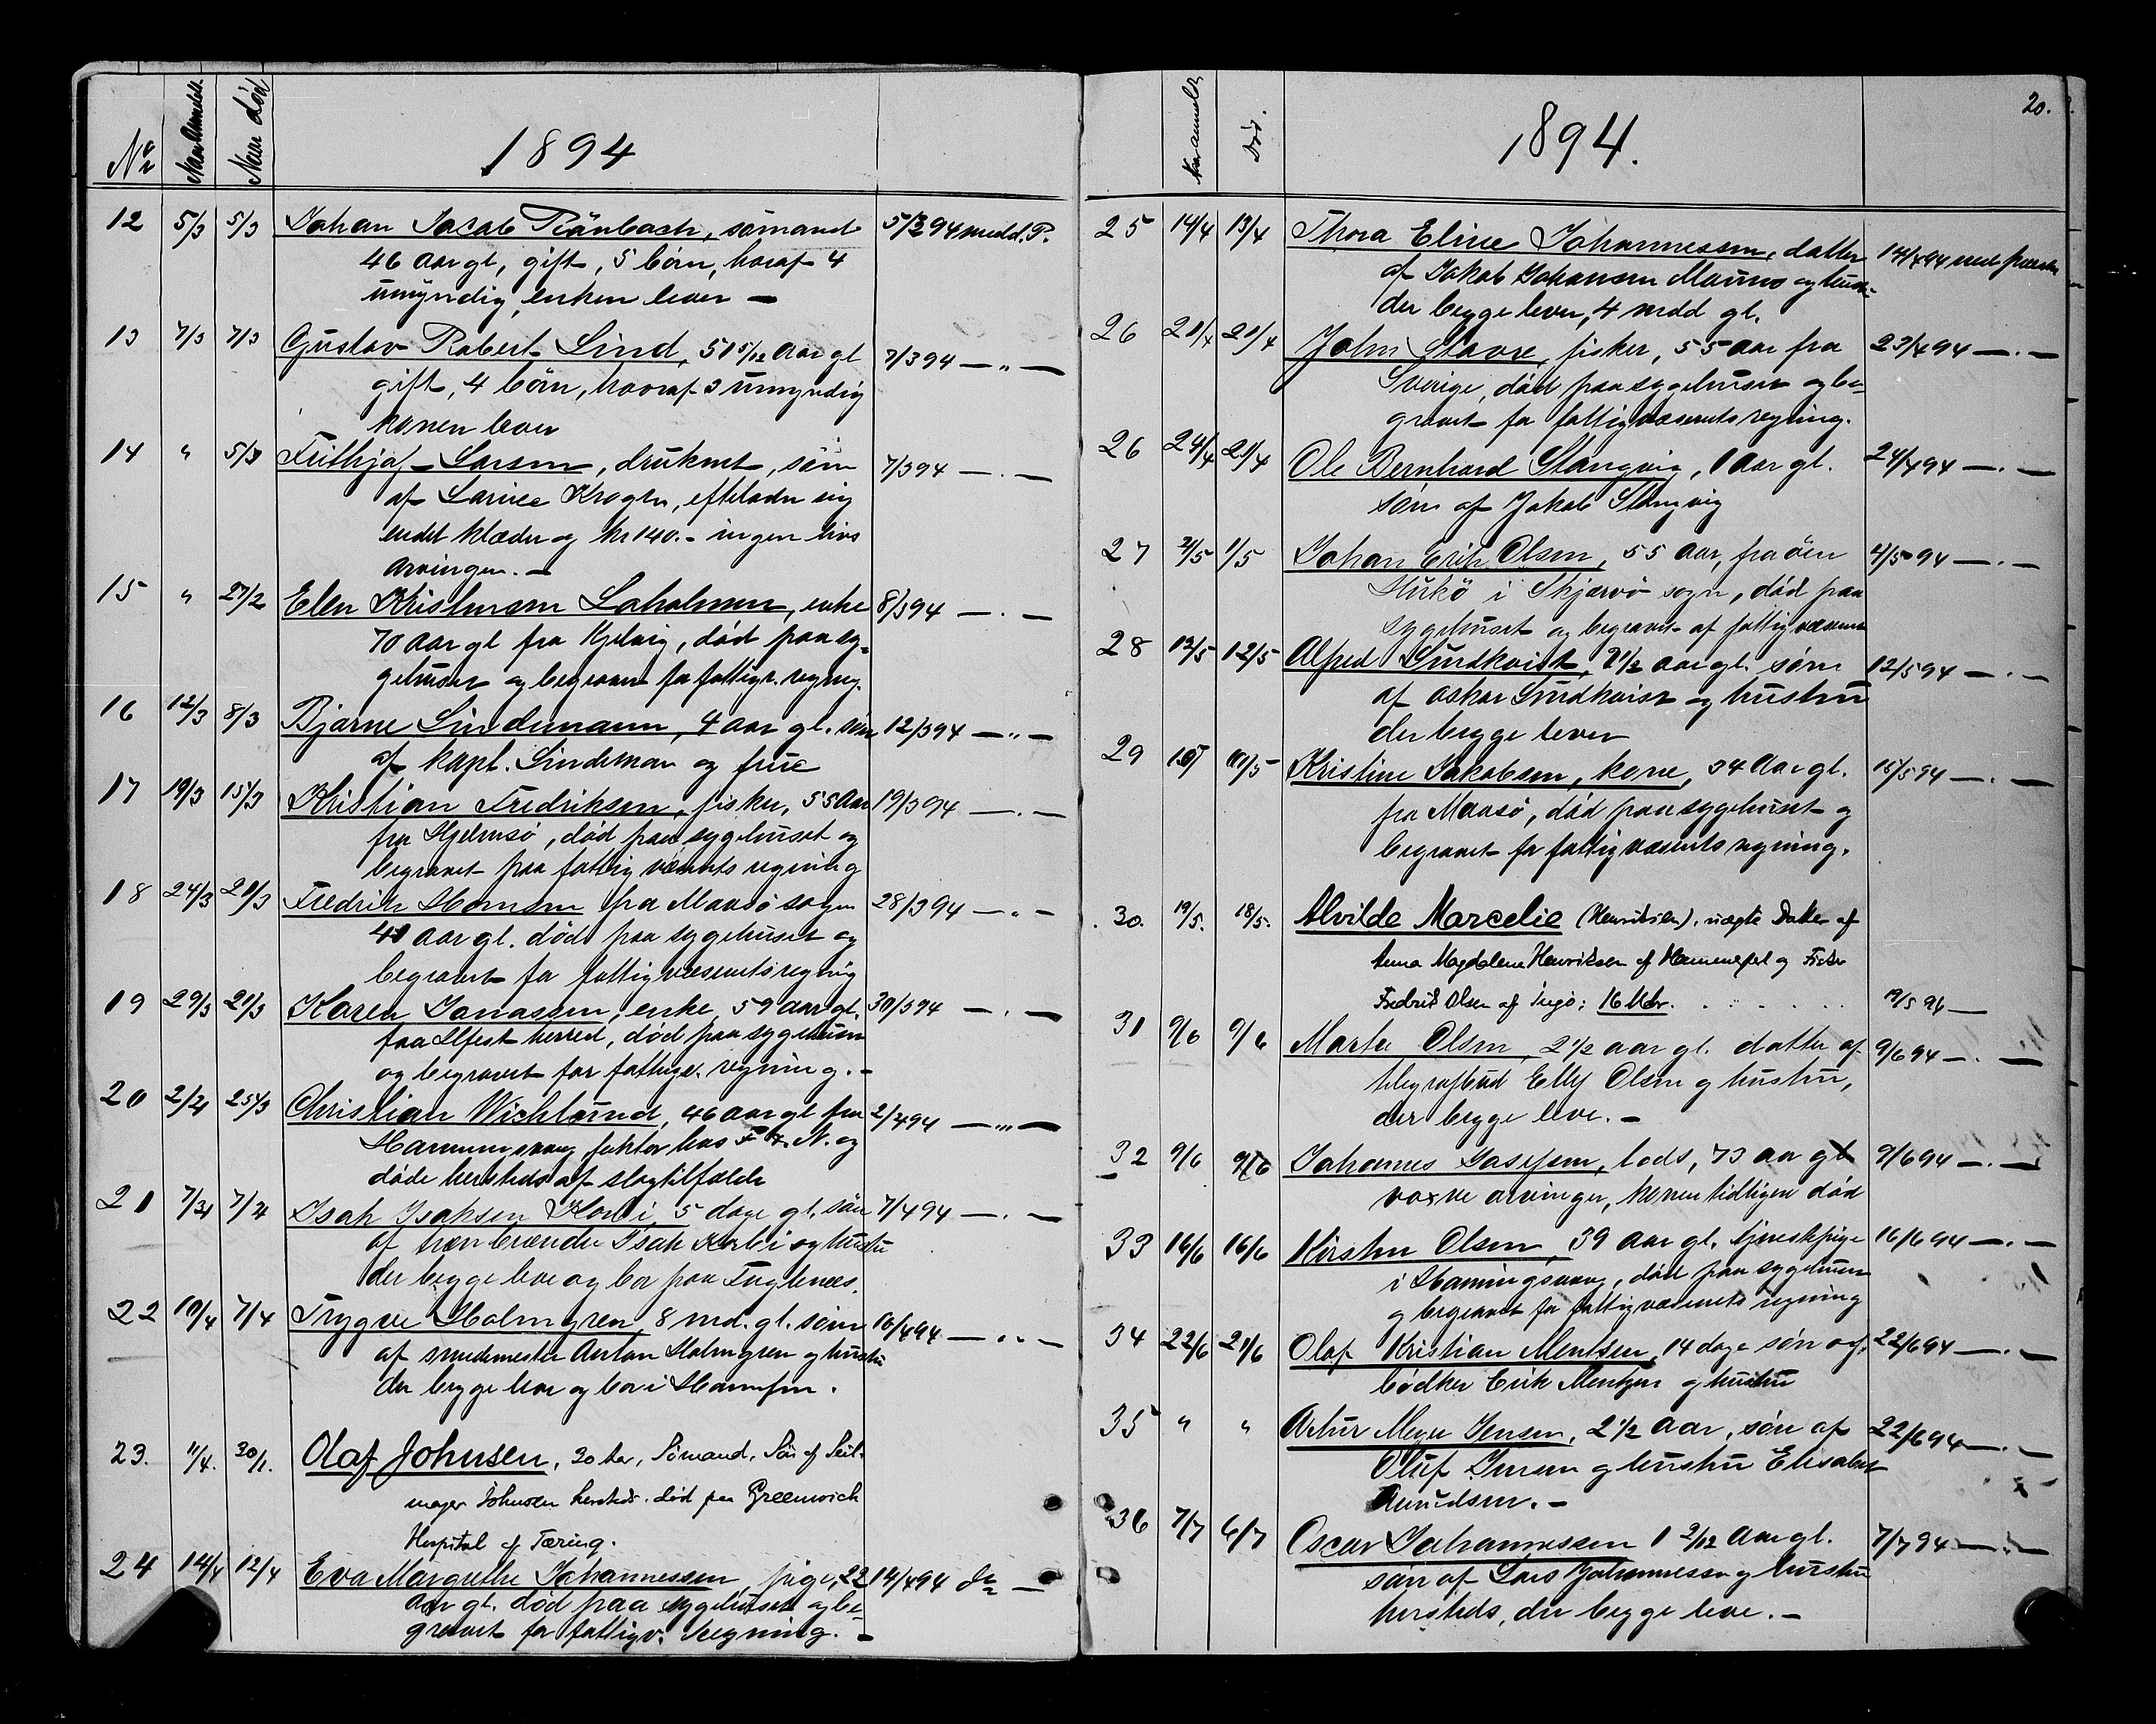 No Naar Anmeldt. Naar Död 1894
12 5/3 5/3 Johan Jacob Rönbach, sömand 5/3 94 medd. P.
46 aar gl, gift, 5 börn, hvoraf 4
umyndig, enken lever —
13 7/3 7/3 Gustav Robert Lind, 51 5/12 aar gl 7/3 94 — " —
gift, 4 börn, hvoraf 3 umyndig
konen lever
14 " 5/3 Frithjof Larsen, druknet, sön 7/3 94 — . —
af Larine Krogen, efterlader sig
endel klæder og kr 140. - ingen livs
arvinger. —
15 " 27/2 Elen Kristensen Laholmen, enke 8/3 94 — . —
70 aar gl fra Kjelvig, död paa sy-
gehuset og begravet for fattigv. regning.
16 12/3 8/3 Bjarne Lindemann, 4 aar gl. sön 12/3 94 — " —
af kapt. Lindeman og frue
17 19/3 15/3 Kristian Fredriksen, fisker, 55 aar 19/3 94 — . —
fra Hjelmsö, död paa sygehuset og
begravet paa fattigvæsenets regning
18 24/3 21/3 Fredrik Hansen fra Maasö sogn 28/3 94 — " —
41 aar gl. död paa sygehuset og
begravet for fattigvæsenets regning
19 29/3 21/3 Karen Jonassen, enke, 59 aar gl. 30/3 94 — . —
fra herred, död paa sygehuset
og begravet for fattigv. regning. —
20 2/4 25/3 Christian Wichlund, 46 aar gl fra 2/4 94 — " —
Honningsvaag, faktor hos F & N. og
döde hersteds af slagtilfælde
21 7/4 7/4 Isak Isaksen Korbi, 5 dage gl, sön 7/4 94 — . —
af tranbrænder Isak Korbi og hustru
der begge leve og bor paa Fuglenæs.
22 10/4 7/4 Trygve Holmgren, 8 md. gl. sön 10/4 94 — " —
af smedmester Anton Holmgren og hustru
der begge leve og bor i Hammfes.
23. 11/4. 30/1. Olaf Johnsen, 30 Aar, Sömand, Sön af Seil-
mager Johnsen hersteds. död paa Greenwich
Hospital af Tæring.
24 14/4 12/4 Eva Margrethe Johannessen, pige, 22 14/4 94 do —
aar gl. död paa sygehuset og be-
gravet for fattigv. regning. —
Naar anmeldt Död. 1894. 20.
25 14/4 13/4 Thora Eline Johannessen, datter 14/4 94 medd præsten
af Jakob Johansen og hustru
der begge lever, 4 mdd gl.
26 21/4 21/4 John Stavre, fisker, 55 aar fra 23/4 94 — . —
Sverige, död paa sygehuset og be-
gravet for fattigvæsenets regning.
26 24/4 21/4 Ole Bernhard Stangvig, 1 aar gl. 24/4 94 — . —
sön af Jakob Stangvig
27 2/5 1/5 Johan Erik Olsen, 55 aar, fra öen 4/5 94 — . —
i Skjervö sogn, död paa
sygehuset og begravet af fattigvæsenet
28 12/5 12/5 Alfred Lundkvist, 2 1/2 aar gl. sönn 12/5 94 — . —
af Oskar Lundkvist og hustru
der begge lever
29 Kristine Jakobsen, kone, 34 aar gl. 16/5 94 — . —
fra Maasö, död paa sygehuset og
begravet for fattigvæsenets regning.
30. 19/5. 18/5. Alvilde Marcelie (Henriksen). uægte Datter af
Anna Magdalena Henriksen af Hammerfest og Fisker
Fredrik Olsen af Ingö: 16 Mdr. 19/5 94 —
31 9/6 9/6 Marta Olsen, 2 1/2 aar gl. datter af 9/6 94 — . —
telegrafbud Ellif Olsen og hustru,
der begge leve. —
32 9/6 9/6 Johannes Josefsen, lods, 73 aar gl 9/6 94 — . —
voxne arvinger, konen tidligere död
33 16/6 16/6 Kirsten Olsen, 39 aar gl. tjenestepige 16/6 94 — . —
i Honningsvaag, död paa sygehuset
og begravet for fattigvæsenets regning
34 22/6 21/6 Olaf Kristian Mentsen, 14 dage sön af 22/6 94 — . —
bödker Erik Mentsen og hustru
35 " " Artur Meyer Jensen, 2 1/2 aar, sön af 22/6 94 — . —
Oluf Jensen og hustru Elisabet
Amundsen. —
36 7/7 6/7 Oscar Johannessen 1 2/12 aar gl. 7/7 94 — . —
sön af Lars Johannessen og hustru
hersteds, der begge leve. —